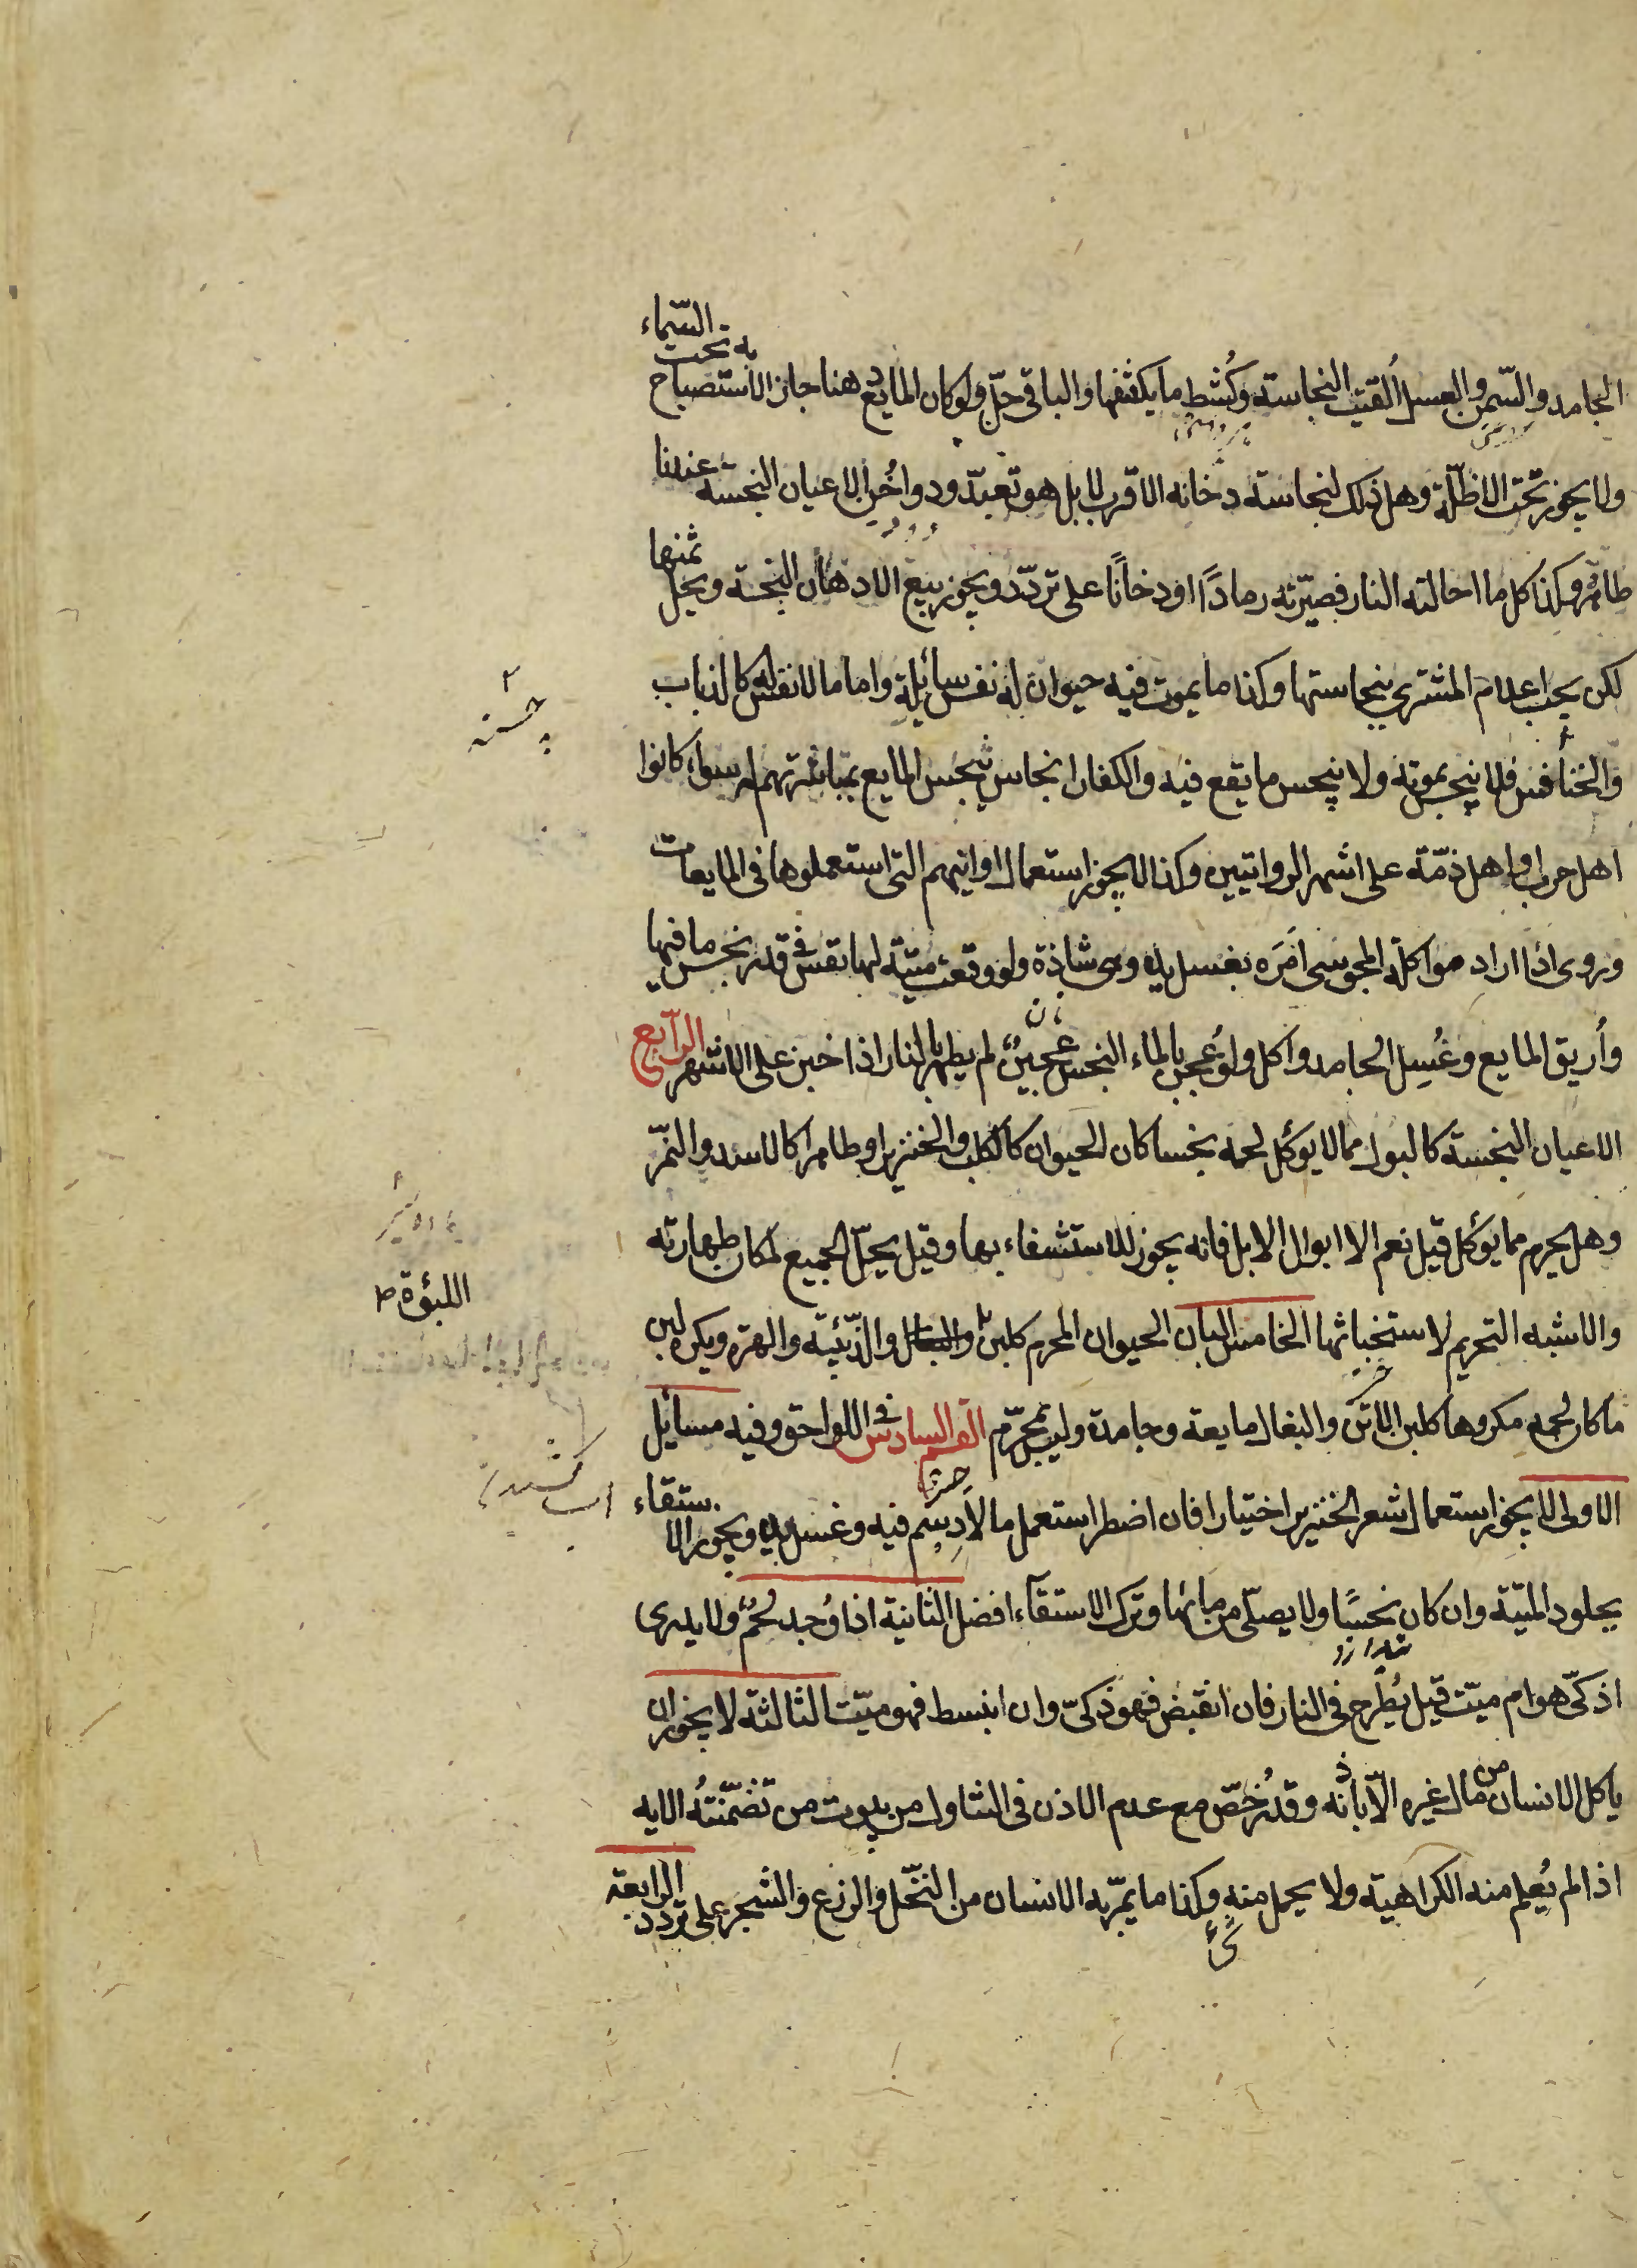 الجامد والسّمن والعسل اُلقيت النجاسة وكُشط ما يكشفها والباقى حلّ ولو كان المايع دهنا جاز الاستصباح به تحت السّماء
ولا يجوز تحت الاظلّة وهل ذلك لنجاسة دخانه الاقرب لا بل هو تعبّد ودواخُن الاعيان النجسة عندنا
طاهرة وكذا كل ما احالته النار فصيّرته رمادًا او دخانًا على تردّد ويجوز بيع الادهان النجسة ويحلّ ثمنها
لكن يجب اعلام المشترى بنجاستها وكذا ما يموت فيه حيوان له نفس سائلة واما ما لا نفس له كالذباب
والخنافس فلا ينجس بموته ولا ينجس ما يقع فيه والكفار انجاس ينجس المايع بمباشرتهم له سواء كانوا
اهل حرب او اهل ذمّة على اشهر الروايتين وكذا لا يجوز استعمال اوانيهم التى استعملوها فى المايعات
وروى اذا اراد مواكلة المجوسى اَمَرَه بغسل يده وهى شاذة ولو وقعت ميتة لها نفس فى قدر نجس ما فيها
واُريق المايع وغُسِل الجامد واكل ولو عُجن بالماء النجس عجينٌ لم يطهر بالنار اذا خبز على الاشهر الرابع
الاعيان النجسة كالبول مما لا يوكل لحمه نجسا كان الحيوان كالكلب والخنزير او طاهرا كالاسد والنّمر
وهل يحرم مما يوكل قيل نعم الا ابوال الابل فانه يجوز للاستشفاء بها وقيل يحلّ الجميع لمكان طهارته
والاشبه التحريم لاستخباثها الخامس البان الحيوان المحرم كلبن والذّئبة والهرة ويكره لبن
ما كان لحمه مكروها كلبن الاتن والبغال مايعة وجامدة وليس بمحرّم القسم السادس فى اللواحق وفيه مسائل
الاولى لا يجوز استعمال شعر الخنزير اختيارا فان اضطر استعمل ما لا دسم فيه وغسل يده ويجوز الاستقاء
بجلود الميّتة وان كان نجسًا ولا يصلّى من مائها وترك الاستقاء افضل الثانية اذا وُجد لحمٌ ولا يدرى
اذكىّ هو ام ميّت قيل يُطرح فى النار فان انقبض فهو ذكىّ وان انبسط فهو ميّت الثالثة لا يجوز ان
ياكل الانسان من مال غيره الّا باذنه وقد رُخّص مع عدم الاذن فى التناول من بيوت من تضمّنتهُ الايه
اذا لم يُعلم منه الكراهية ولا يحمل منه وكذا ما يمرّ به الانسان من النّخل والزرع والشجر على تردد الرابعة
اللبؤة